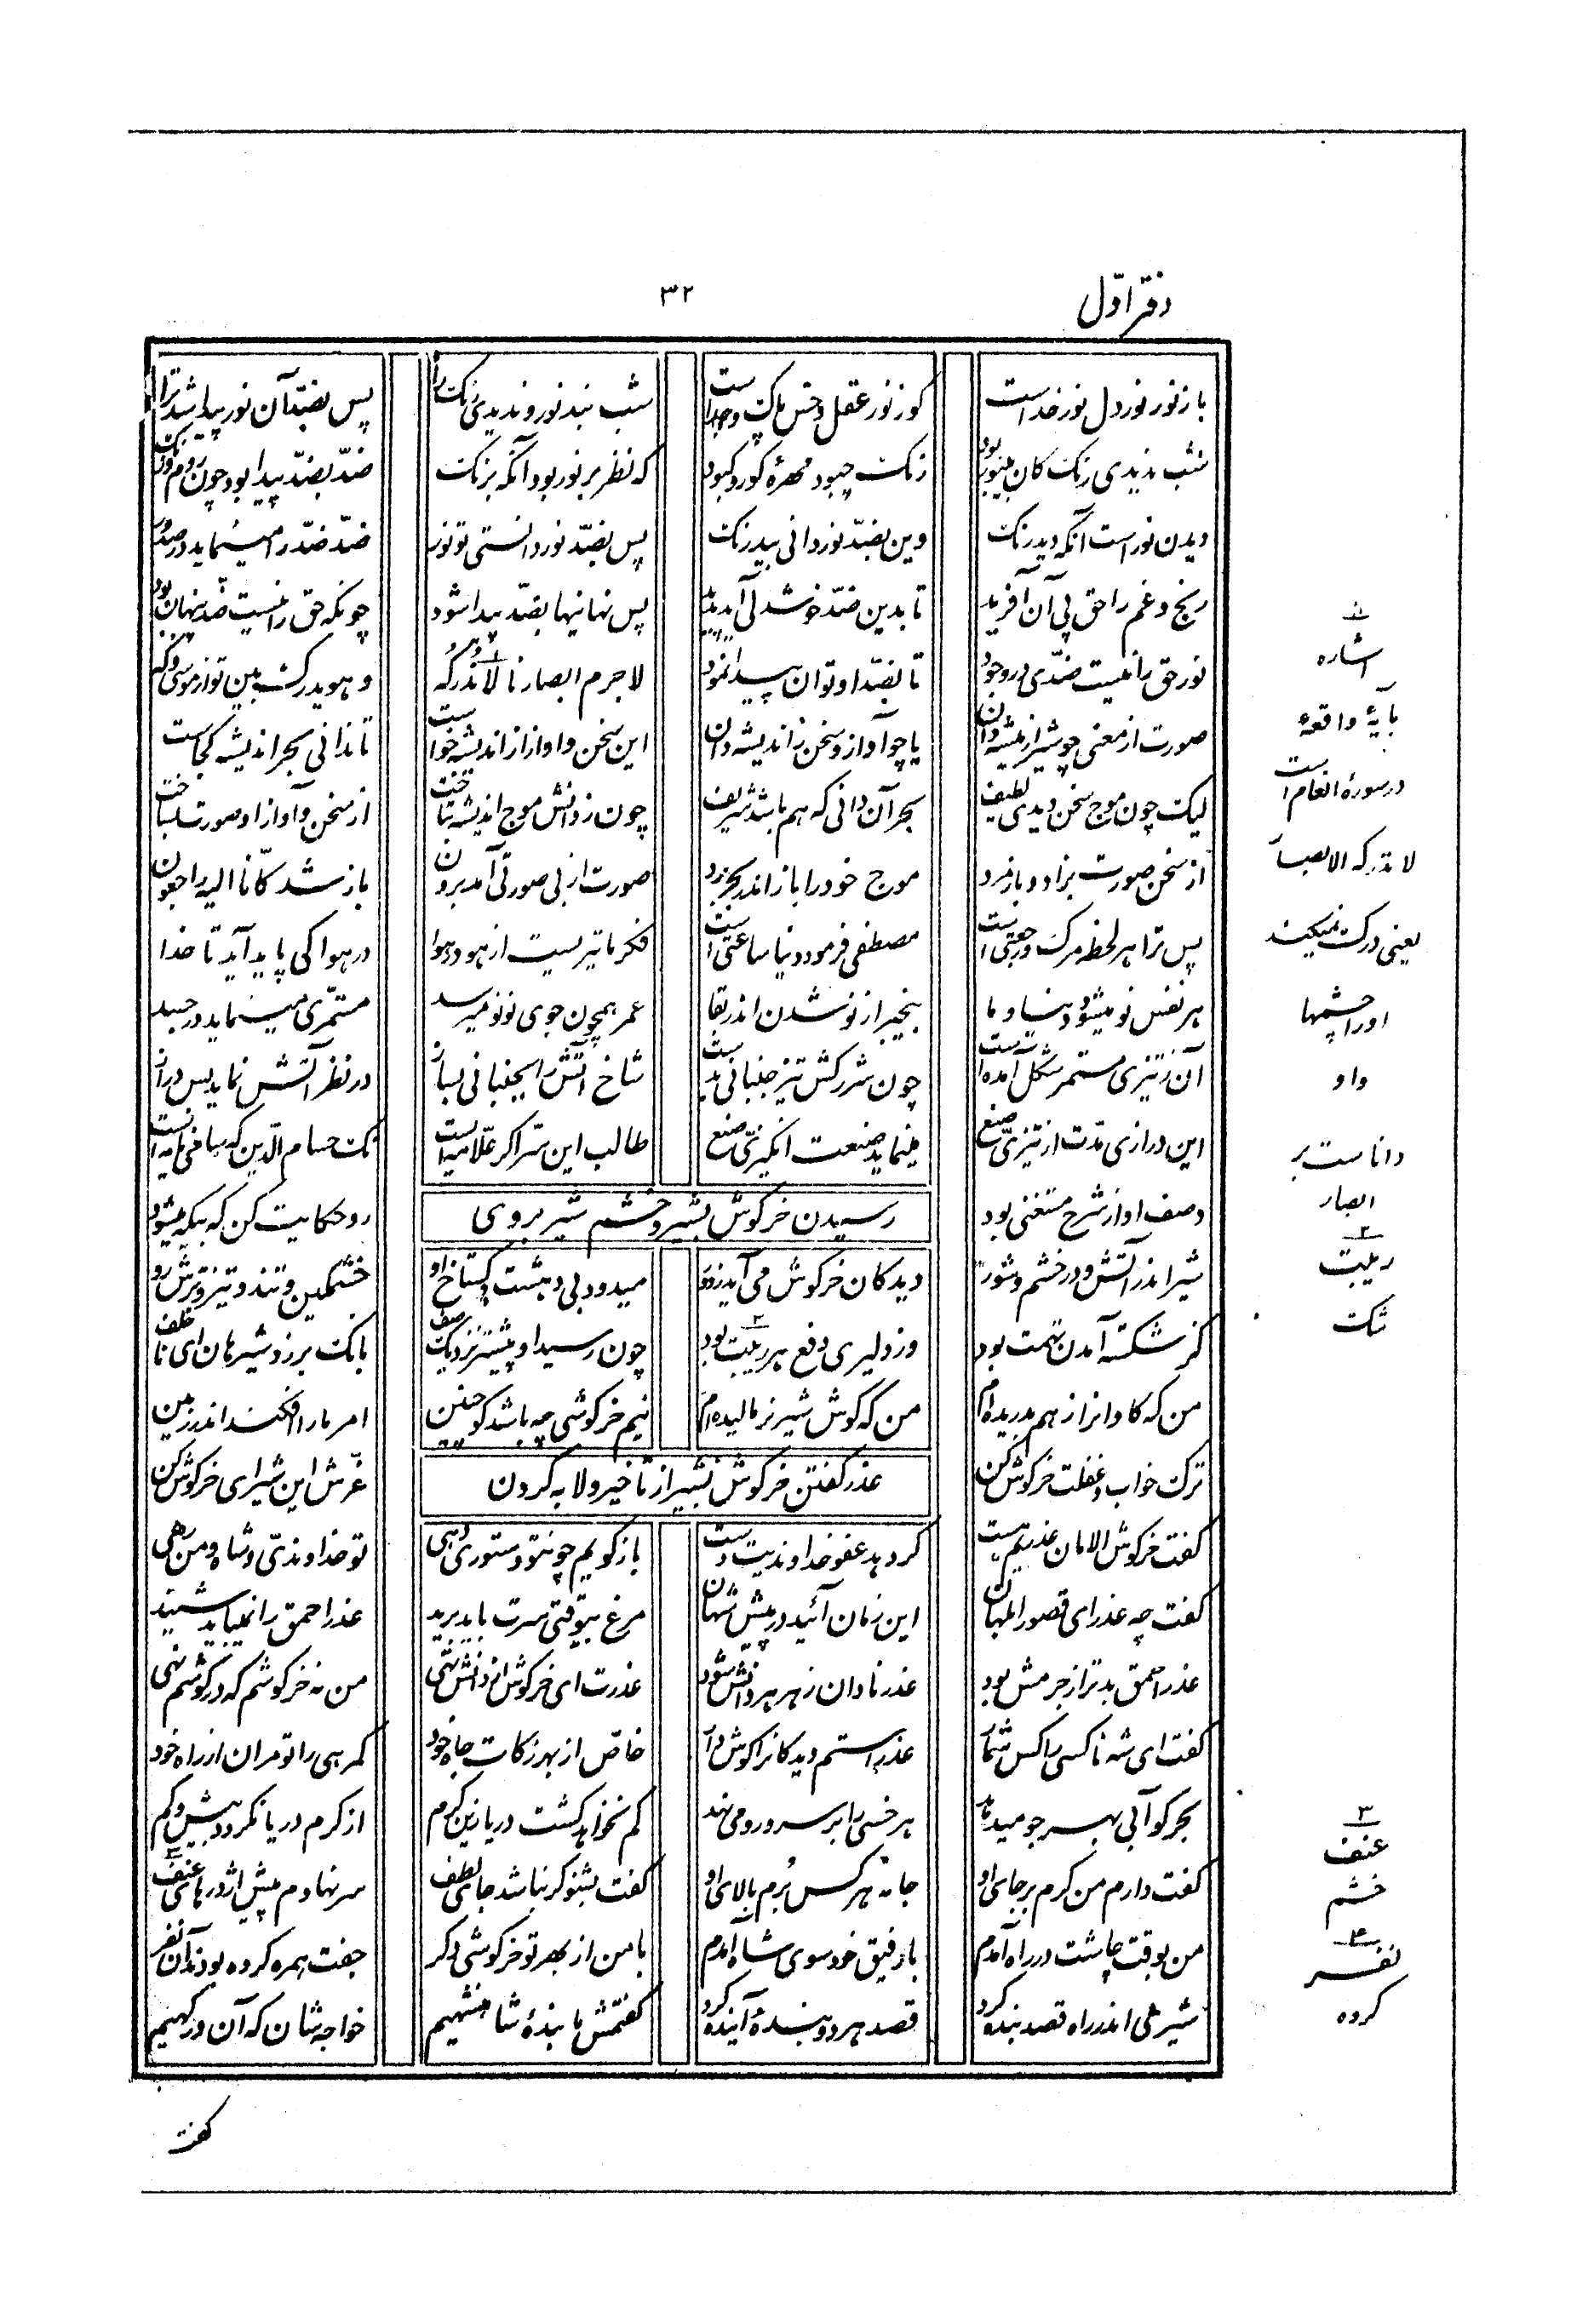 دفتر اوّل
۳۲
باز نور نور دل نور خداست کو ز نور عقل و حس پاک و جداست شب نبد نور و ندیدی رنگ را پس بضدّ آن نور پیدا شد ترا
شب ندیدی رنگ کان بینور بود رنگ چبود مهرهٔ کور و کبود که نظر بر نور بود آنگه برنگ ضدّ بضدّ پیدا بود چون روم و زنگ
دیدن نور است آنگه دید رنگ وین بضدّ نور دانی بیدرنگ پس بضدّ نور دانستی تو نور ضدّ ضدّ را مینماید در صدور
رنج و غم را حق پی آن آفرید تا بدین ضدّ خوشدلی آید پدید پس نهانیها بضدّ پیدا شود چونکه حق را نیست ضدّ پنهان بود
نور حق را نیست ضدّی در وجود تا بضدّ او توان پیدا نمود لاجرم ابصارنا لا تدرکه و هو یدرک بین تو از موسی و که
صورت از معنی چو شیر از بیشه دان یا چو آواز و سخن ز اندیشه دان این سخن و آواز از اندیشه خواست تا ندانی بحر اندیشه کجاست
لیک چون موج سخن دیدی لطیف بحر آن دانی که هم باشد شریف چون ز دانش موج اندیشه بتاخت از سخن و آواز او صورت بساخت
از سخن صورت بزاد و باز مرد موج خود را باز اندر بحر برد صورت از بی صورتی آمد برون باز شد کانّا الیه راجعون
پس ترا هر لحظه مرگ و رجعتی است مصطفی فرمود دنیا ساعتی است فکر ما تیریست از هو در هوا در هوا کی پاید آید تا خدا
هر نفس نو میشود دنیا و ما بیخبر از نو شدن اندر بقا عمر همچون جوی نو نو میرسد مستمرّی مینماید در جسد
آن ز تیزی مستمر شکل آمده است چون شرر کش تیز جنبانی بدست شاخ آتش را بجنبانی بساز در نظر آتش نماید بس دراز
این درازی مدّت از تیزیّ صنع مینماید صنعت انگیزیّ صنع طالب این سرّ اگر علّامه است نک حسام الدّین که سامی نامه است
وصف او از شرح مستغنی بود رو حکایت کن که بیگه میشود
رسیدن خرگوش بشیر و خشم شیر بر وی
شیر اندر آتش و در خشم و شور دید کان خرگوش می آید ز دور میدود بی دهشت و گستاخ او خشمگین و تند و تیز و ترش رو
کز شکسته آمدن تهمت بود وز دلیری دفع هر ریبت بود چون رسید او پیشتر نزدیک صف بانگ بر زد شیر هان ای نا خلف
من که گاوانرا ز هم بدریده ام من که گوش شیر نر مالیده ام نیم خرگوشی چه باشد کو چنین امر ما را افکند اندر زمین
ترک خواب و غفلت خرگوش کن غرّش این شیر ای خرگوش کن
عذر گفتن خرگوش بشیر از تاخیر و لابه کردن
گفت خرگوش الامان عذریم هست گر دهد عفو خداوندیت دست باز گویم چون تو دستوری دهی تو خداوندیّ و شاه و من رهی
گفت چه عذر ای قصور ابلهان این زمان آئید در پیش شهان مرغ بیوقتی سرت باید برید عذر احمق را نمیباید شنید
عذر احمق بدتر از جرمش بود عذر نادان زهر هر دانش شود عذرت ای خرگوش از دانش تهی من نه خرگوشم که در گوشم نهی
گفت ای شه ناکسی را کس شمار عذر استم دیدگانرا گوش دار خاصّ از بهر زکات جاه خود گمرهی را تو مران از راه خود
بحر کو آبی بهر جو میدهد هر خسی را بر سر و رو می نهد کم نخواهد گشت دریا زین کرم از کرم دریا نگردد بیش و کم
گفت دارم من کرم بر جای او جامه هر کس بُرم بالای او گفت بشنو گر نباشد جای لطف سر نهادم پیش اژدرهای عنف
من بوقت چاشت در راه آمدم با رفیق خود سوی شاه آمدم با من از بهر تو خرگوشی دگر جفت همره کرده بودند آن نفر
شیری اندر راه قصد بنده کرد قصد هر دو بندهٔ آینده کرد گفتمش ما بندهٔ شاهنشهیم خواجه تاشان که آن درگهیم
۱
اشاره
بآیهٔ واقعهٔ
در سورهٔ انعام است
لا تدرکه الابصار
یعنی درک نمیکند
او را چشمها
و او
دانا است بر
ابصار
۲
ریبت
شک
۳
عنف
خشم
۴
نفر
گروه
گفت